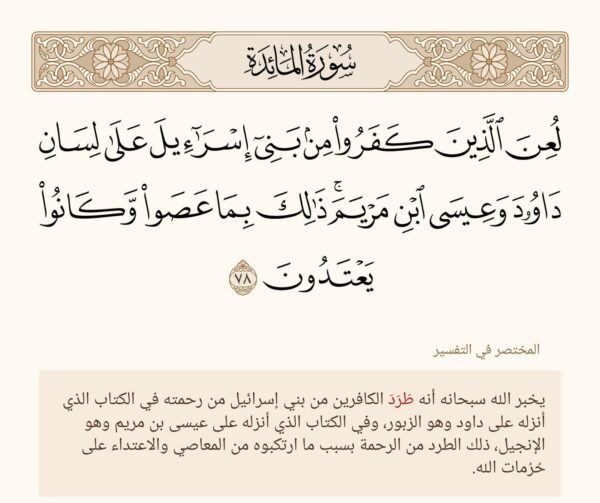 سُورَةُ المَائِدَةِ
لُعِنَ ٱلَّذِينَ كَفَرُوا۟ مِنۢ بَنِىٓ إِسْرَٰٓءِيلَ عَلَىٰ لِسَانِ
دَاوُۥدَ وَعِيسَى ٱبْنِ مَرْيَمَ ۚ ذَٰلِكَ بِمَا عَصَوا۟ وَّكَانُوا۟
يَعْتَدُونَ ٧٨
المختصر في التفسير
يخبر الله سبحانه أنه طَرَدَ الكافرين من بني إسرائيل من رحمته في الكتاب الذي
أنزله على داود وهو الزبور، وفي الكتاب الذي أنزله على عيسى بن مريم وهو
الإنجيل، ذلك الطرد من الرحمة بسبب ما ارتكبوه من المعاصي والاعتداء على
حُرُمات الله.